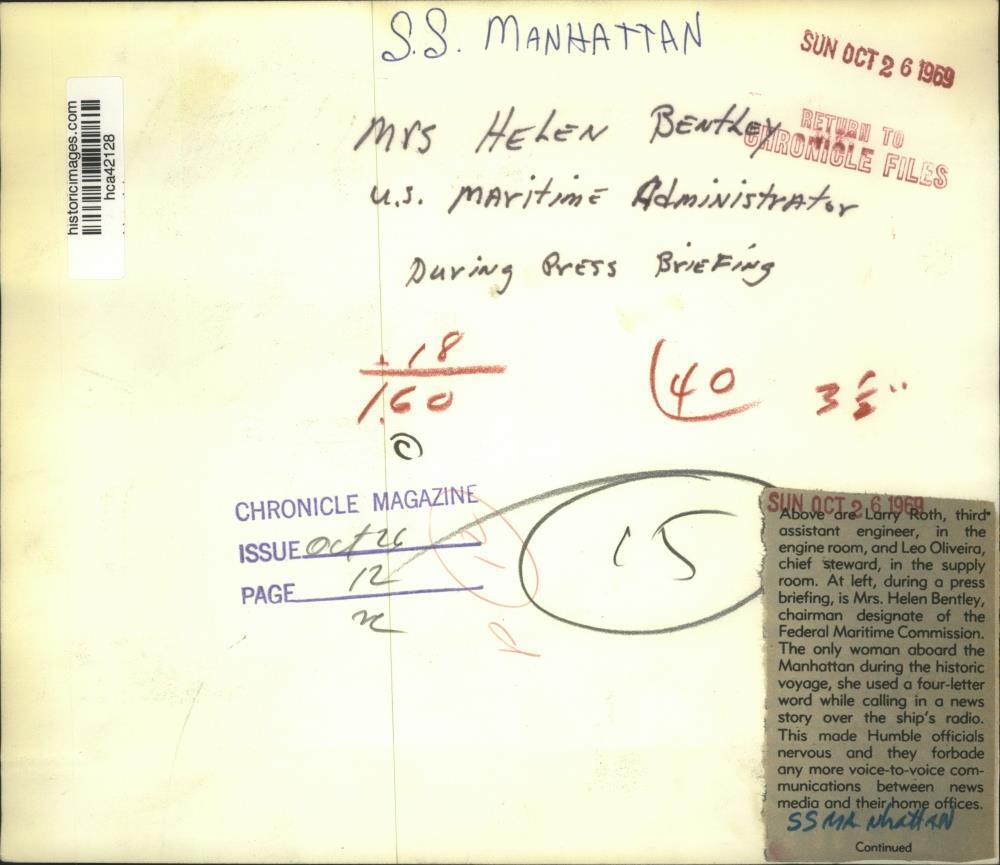 S.S. MANHATTAN
SUN OCT 26 1969
historicimages.com
hca42128
Mrs HELEN BENTLEY
RETURN TO
CHRONICLE FILES
U.S. MARITIME Administrator
During PRESS BRIEFING
+ 18
1.60
40
3 1/2"
C
CHRONICLE MAGAZINE
ISSUE Oct 26
PAGE 12
P. 12
15
SUN OCT 26 1969
Above are Larry Roth, third
assistant engineer, in the
engine room, and Leo Oliveira,
chief steward, in the supply
room. At left, during a press
briefing, is Mrs. Helen Bentley,
chairman designate of the
Federal Maritime Commission.
The only woman aboard the
Manhattan during the historic
voyage, she used a four-letter
word while calling in a news
story over the ship's radio.
This made Humble officials
nervous and they forbade
any more voice-to-voice com-
munications between news
media and their home offices.
SS Manhattan
Continued